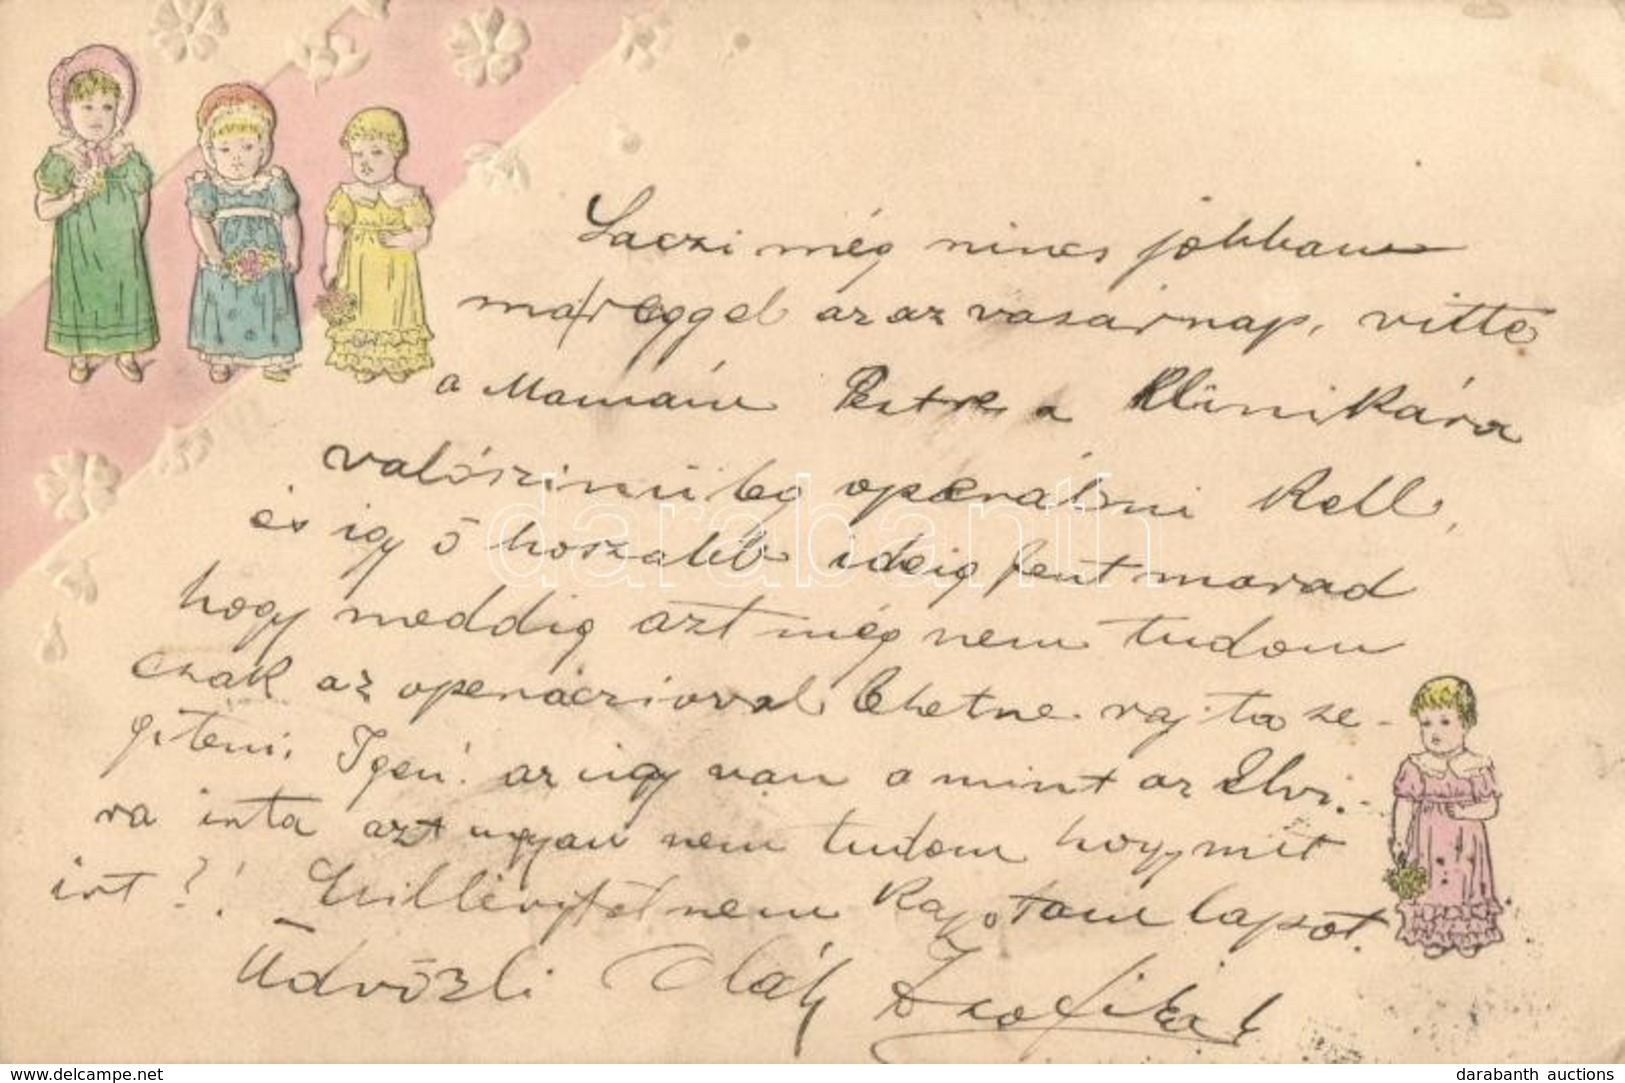 Laczi még nincs jobban
ma reggel az az vasárnap, vitte
a Mamám Pestre a Klinikára
valószinüleg operálni kell,
és igy ő hoszabb ideig fent marad
hogy meddig azt még nem tudom
csak az operáczioval lehetne rajta se-
giteni. Igen! az ugy van a mint az Elvi-
ra irta azt ugyan nem tudom hogy mit
irt?! nem kaptam lapot.
Üdvözli Oláh Zsofika
darabanth
www.delcampe.net
darabanth auctions